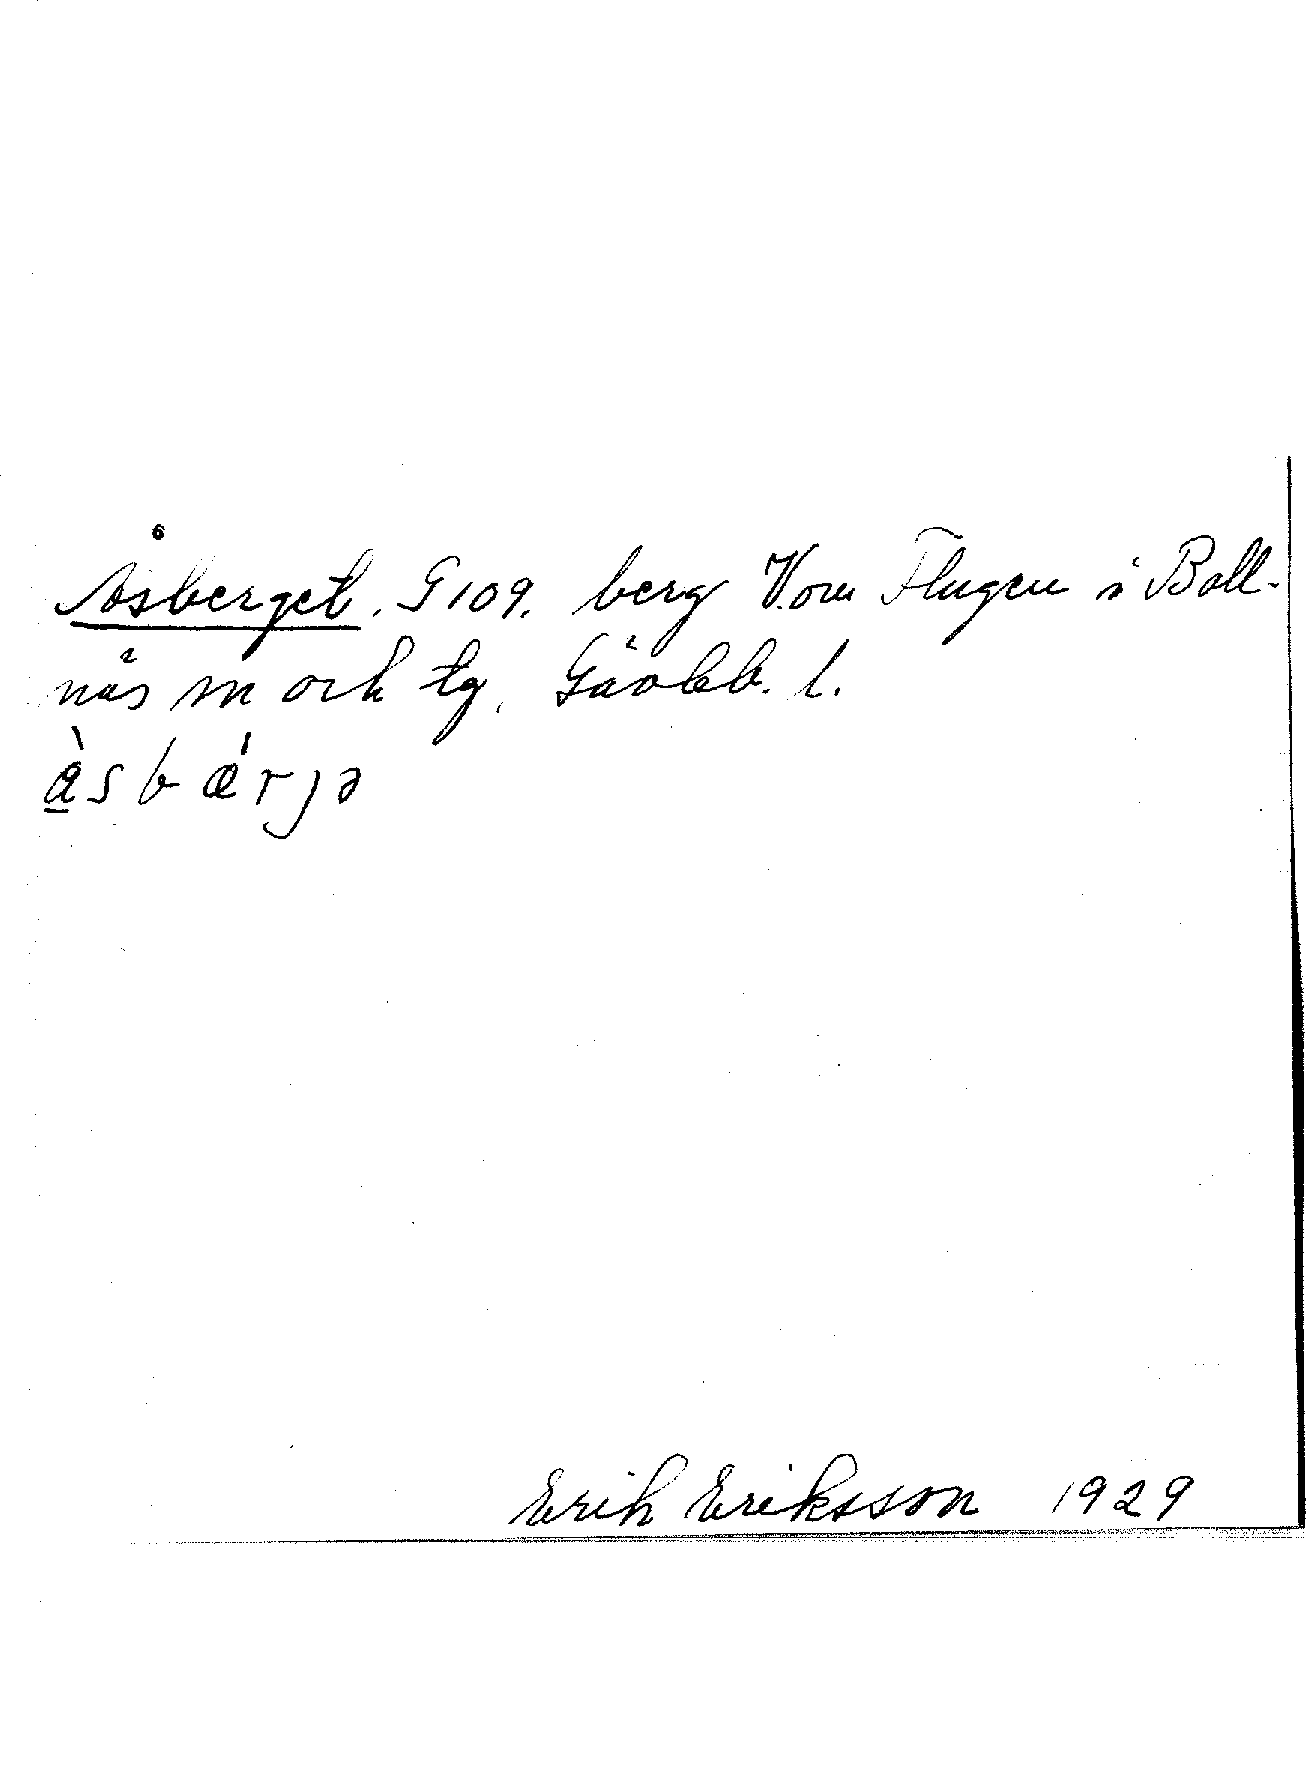 Åsberget. G 109. berg V. om Flugen i Boll-
näs sn och tg, Gävleb. l.
à̱sbǽrjə
Erik Eriksson 1929